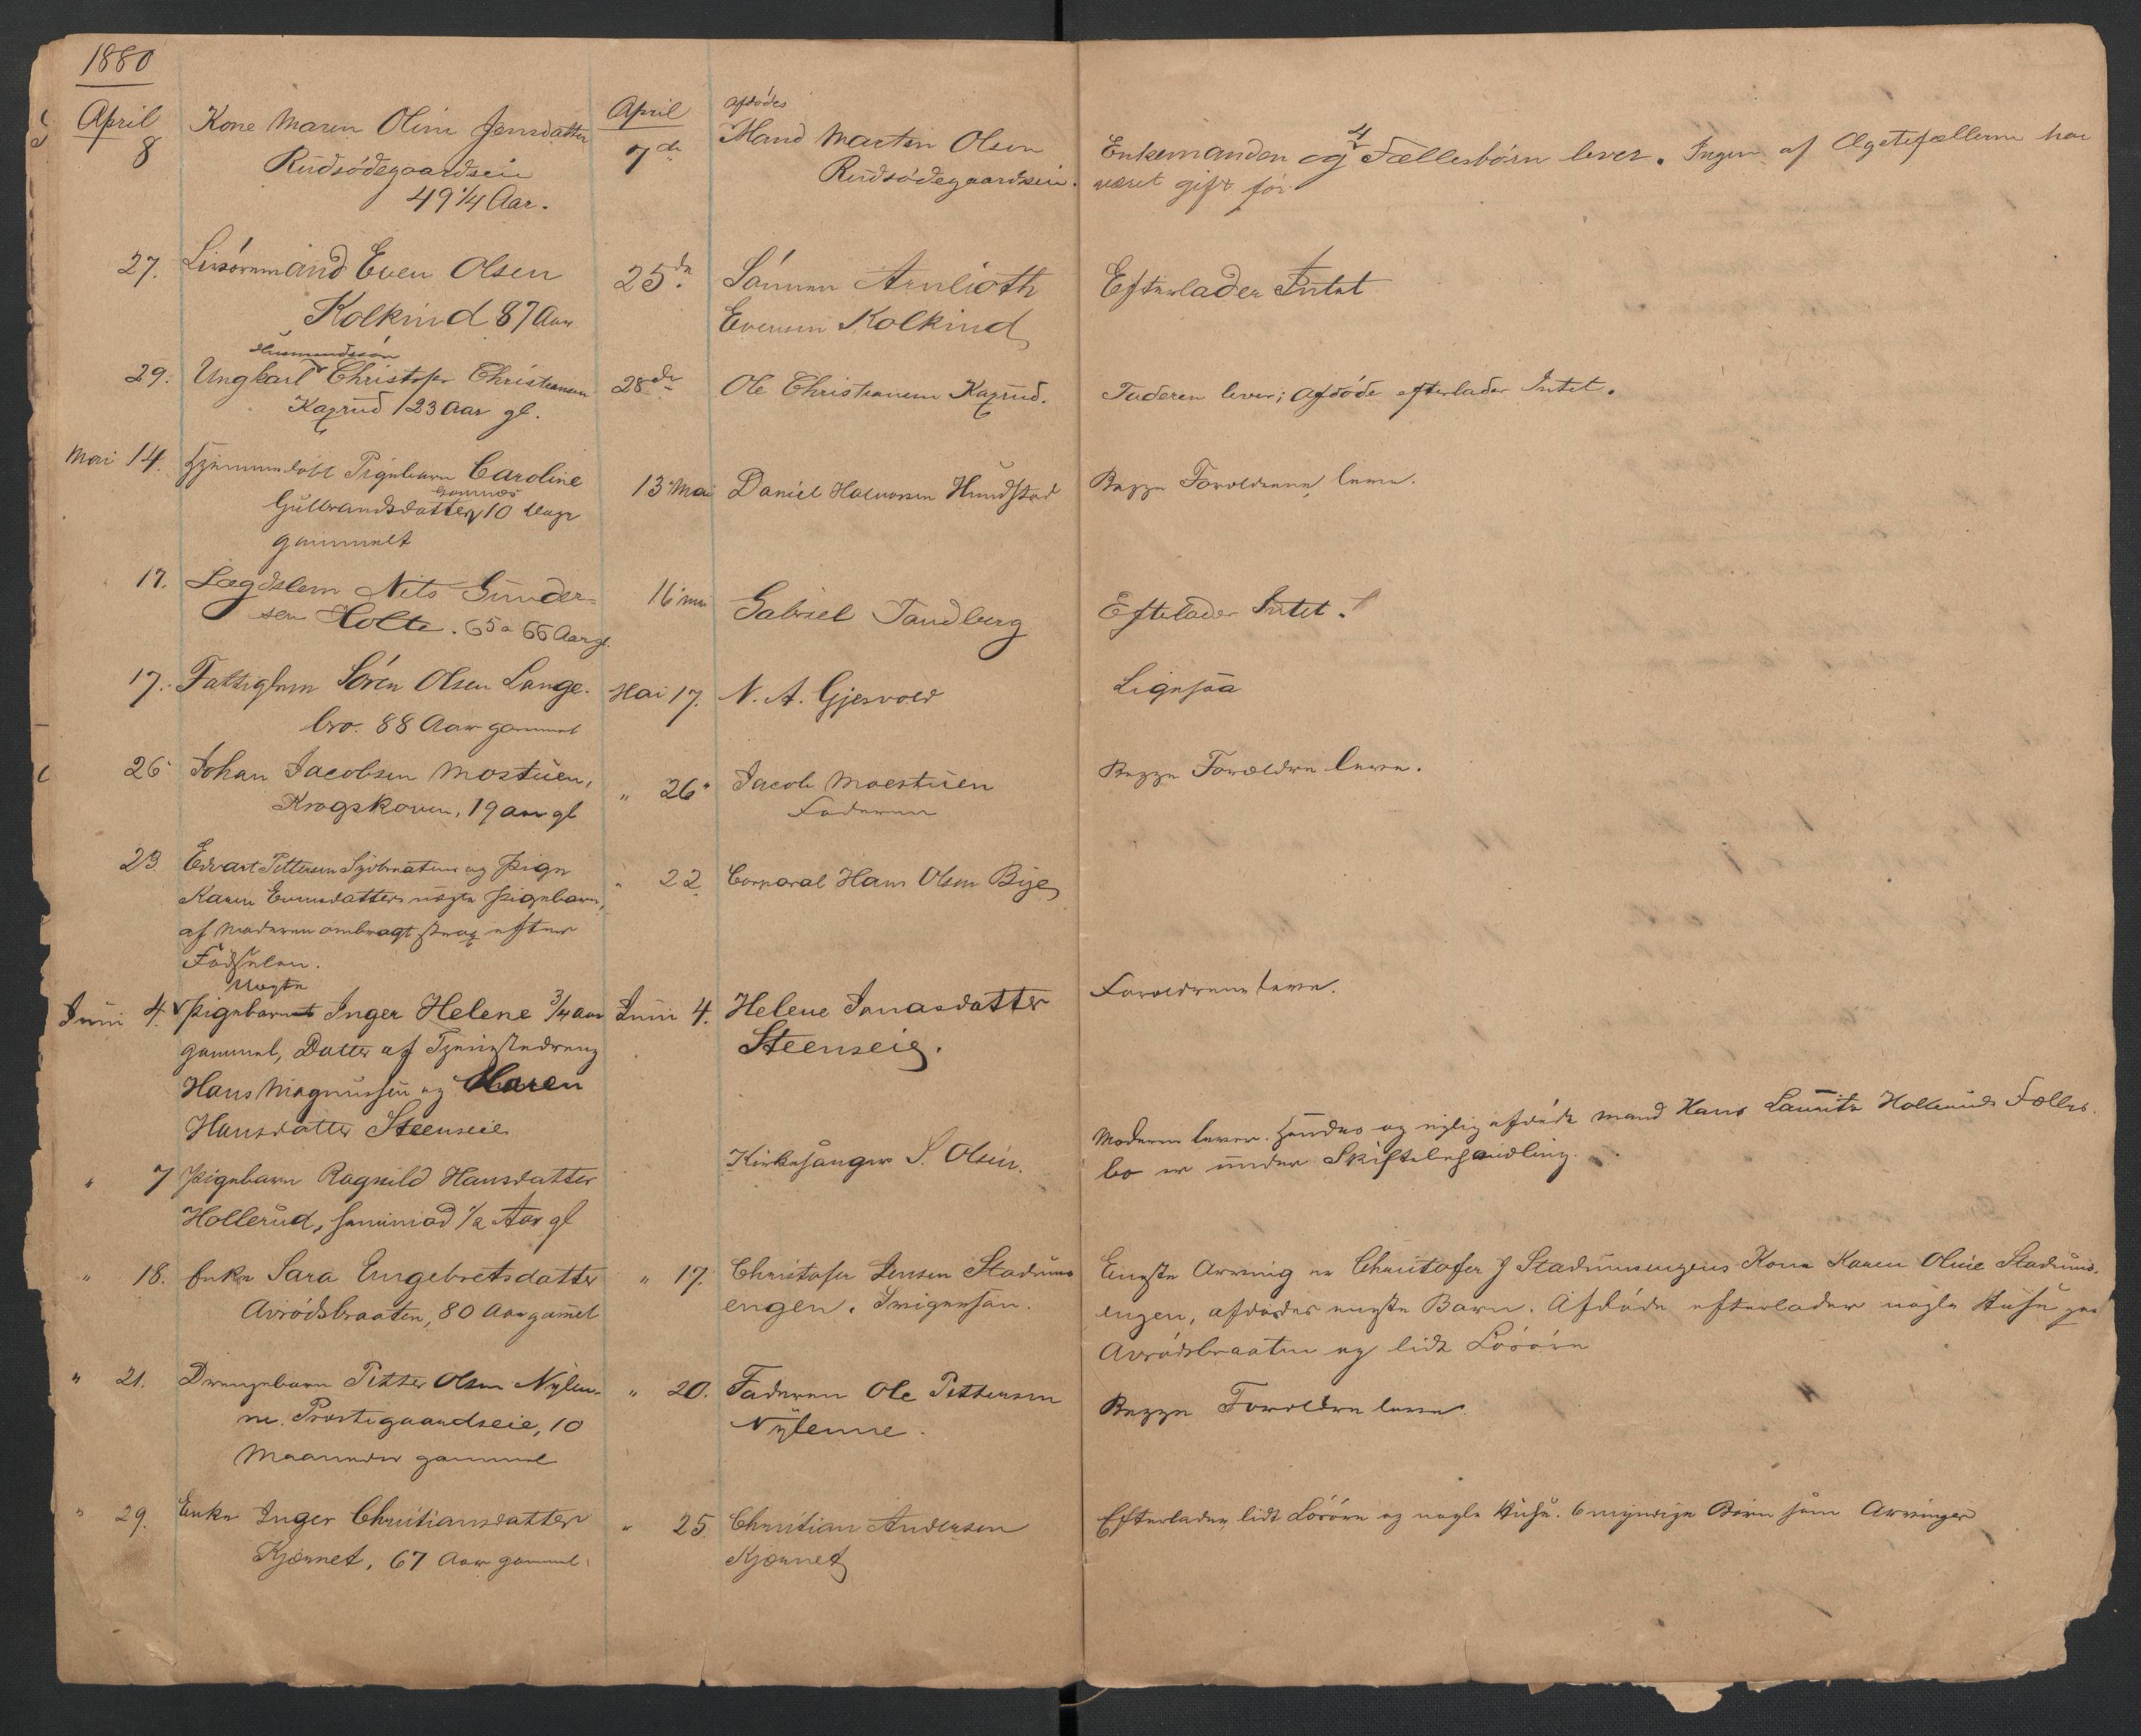 1880
April
8
Kone Maren Oline Jensdatter
Rudsødegaardseie
49 1/4 Aar.
April
7de
Afdødes
Mand Martin Olsen
Rudsødegaardseie.
Enkemanden og 4 Fællesbørn lever. Ingen af Ægtefællerne har
været gift før
27.
mand Even Olsen
Kolkind 87 Aar
25de
Sønnen Arnlioth
Evensen Kolkind
Efterlader Intet
29.
Husmandssøn
Ungkarl Christofer Christiansen
Kaxrud 23 Aar gl.
28de
Ole Christiansen Kaxrud.
Faderen lever; Afdøde efterlader Intet.
Mai 14.
Hjemmedøbt Pigebarn Caroline
Gulbrandsdatter 10 Uger
gammelt
13 Mai
Daniel Halvorsen Hundstad
Begge Forældrene leve.
17.
Lægdslem Nils Gunder-
sen Holte. 65 a 66 Aar gl.
16 mai
Gabriel Sandberg
Efterlader Intet.
17.
Fattiglem Søren Olsen Lange-
bro. 88 Aar gammel
Mai 17.
N. A. Gjesvold
Ligesaa
26
Johan Jacobsen Mostuen,
Krogskoven, 19 aar gl
" 26
Jacob Moestuen
Faderen
Begge Forældre leve.
23.
Edvart Pettersen og Pige
Karen Evensdatters uægte Pigebarn,
af Moderen ombragt strax efter
Fødselen.
" 22.
Corporal Hans Olsen Bye
Juni 4.
Uægte
Pigebarn Inger Helene 3/4 aar
gammel, Datter af Tjenestedreng
Hans Magnussen og Maren
Hansdatter Steenseie
Juni 4.
Helene Jonasdatter
Steenseie.
Forældrene leve.
" 7
Pigebarn Ragnild Hansdatter
Hollerud, 1/2 Aar gl
Kirkesanger S. Olsen.
Moderen lever. Hendes og nylig afdøde Mand Hans Lauritz Holleruds Fælles-
bo er under Skiftebehandling.
" 18.
Enke Sara Engebretsdatter
Avrødsbraaten, 80 Aar gamel
" 17.
Christofer Jensen Stadums-
engen. Svigersøn.
Eneste Arving er Christofer J Stadumsengens Kone Karen Olive Stadums-
engen, afdødes eneste Barn. Afdøde efterlader nogle Huse paa
Avrødsbraaten og lidt Løsøre
" 21.
Drengebarn Petter Olsen Nylen-
ne. Prestegaardseie, 10
Maaneder gammel
" 20.
Faderen Ole Pettersen
Nylenne.
Begge Forældre leve.
" 29.
Enke Inger Christiansdatter
Kjønnet, 67 Aar gammel
" 25
Christian Andersen
Kjønnet
Efterlader lidt Løsøre og nogle Huse. 6 myndige Børn som Arvinger